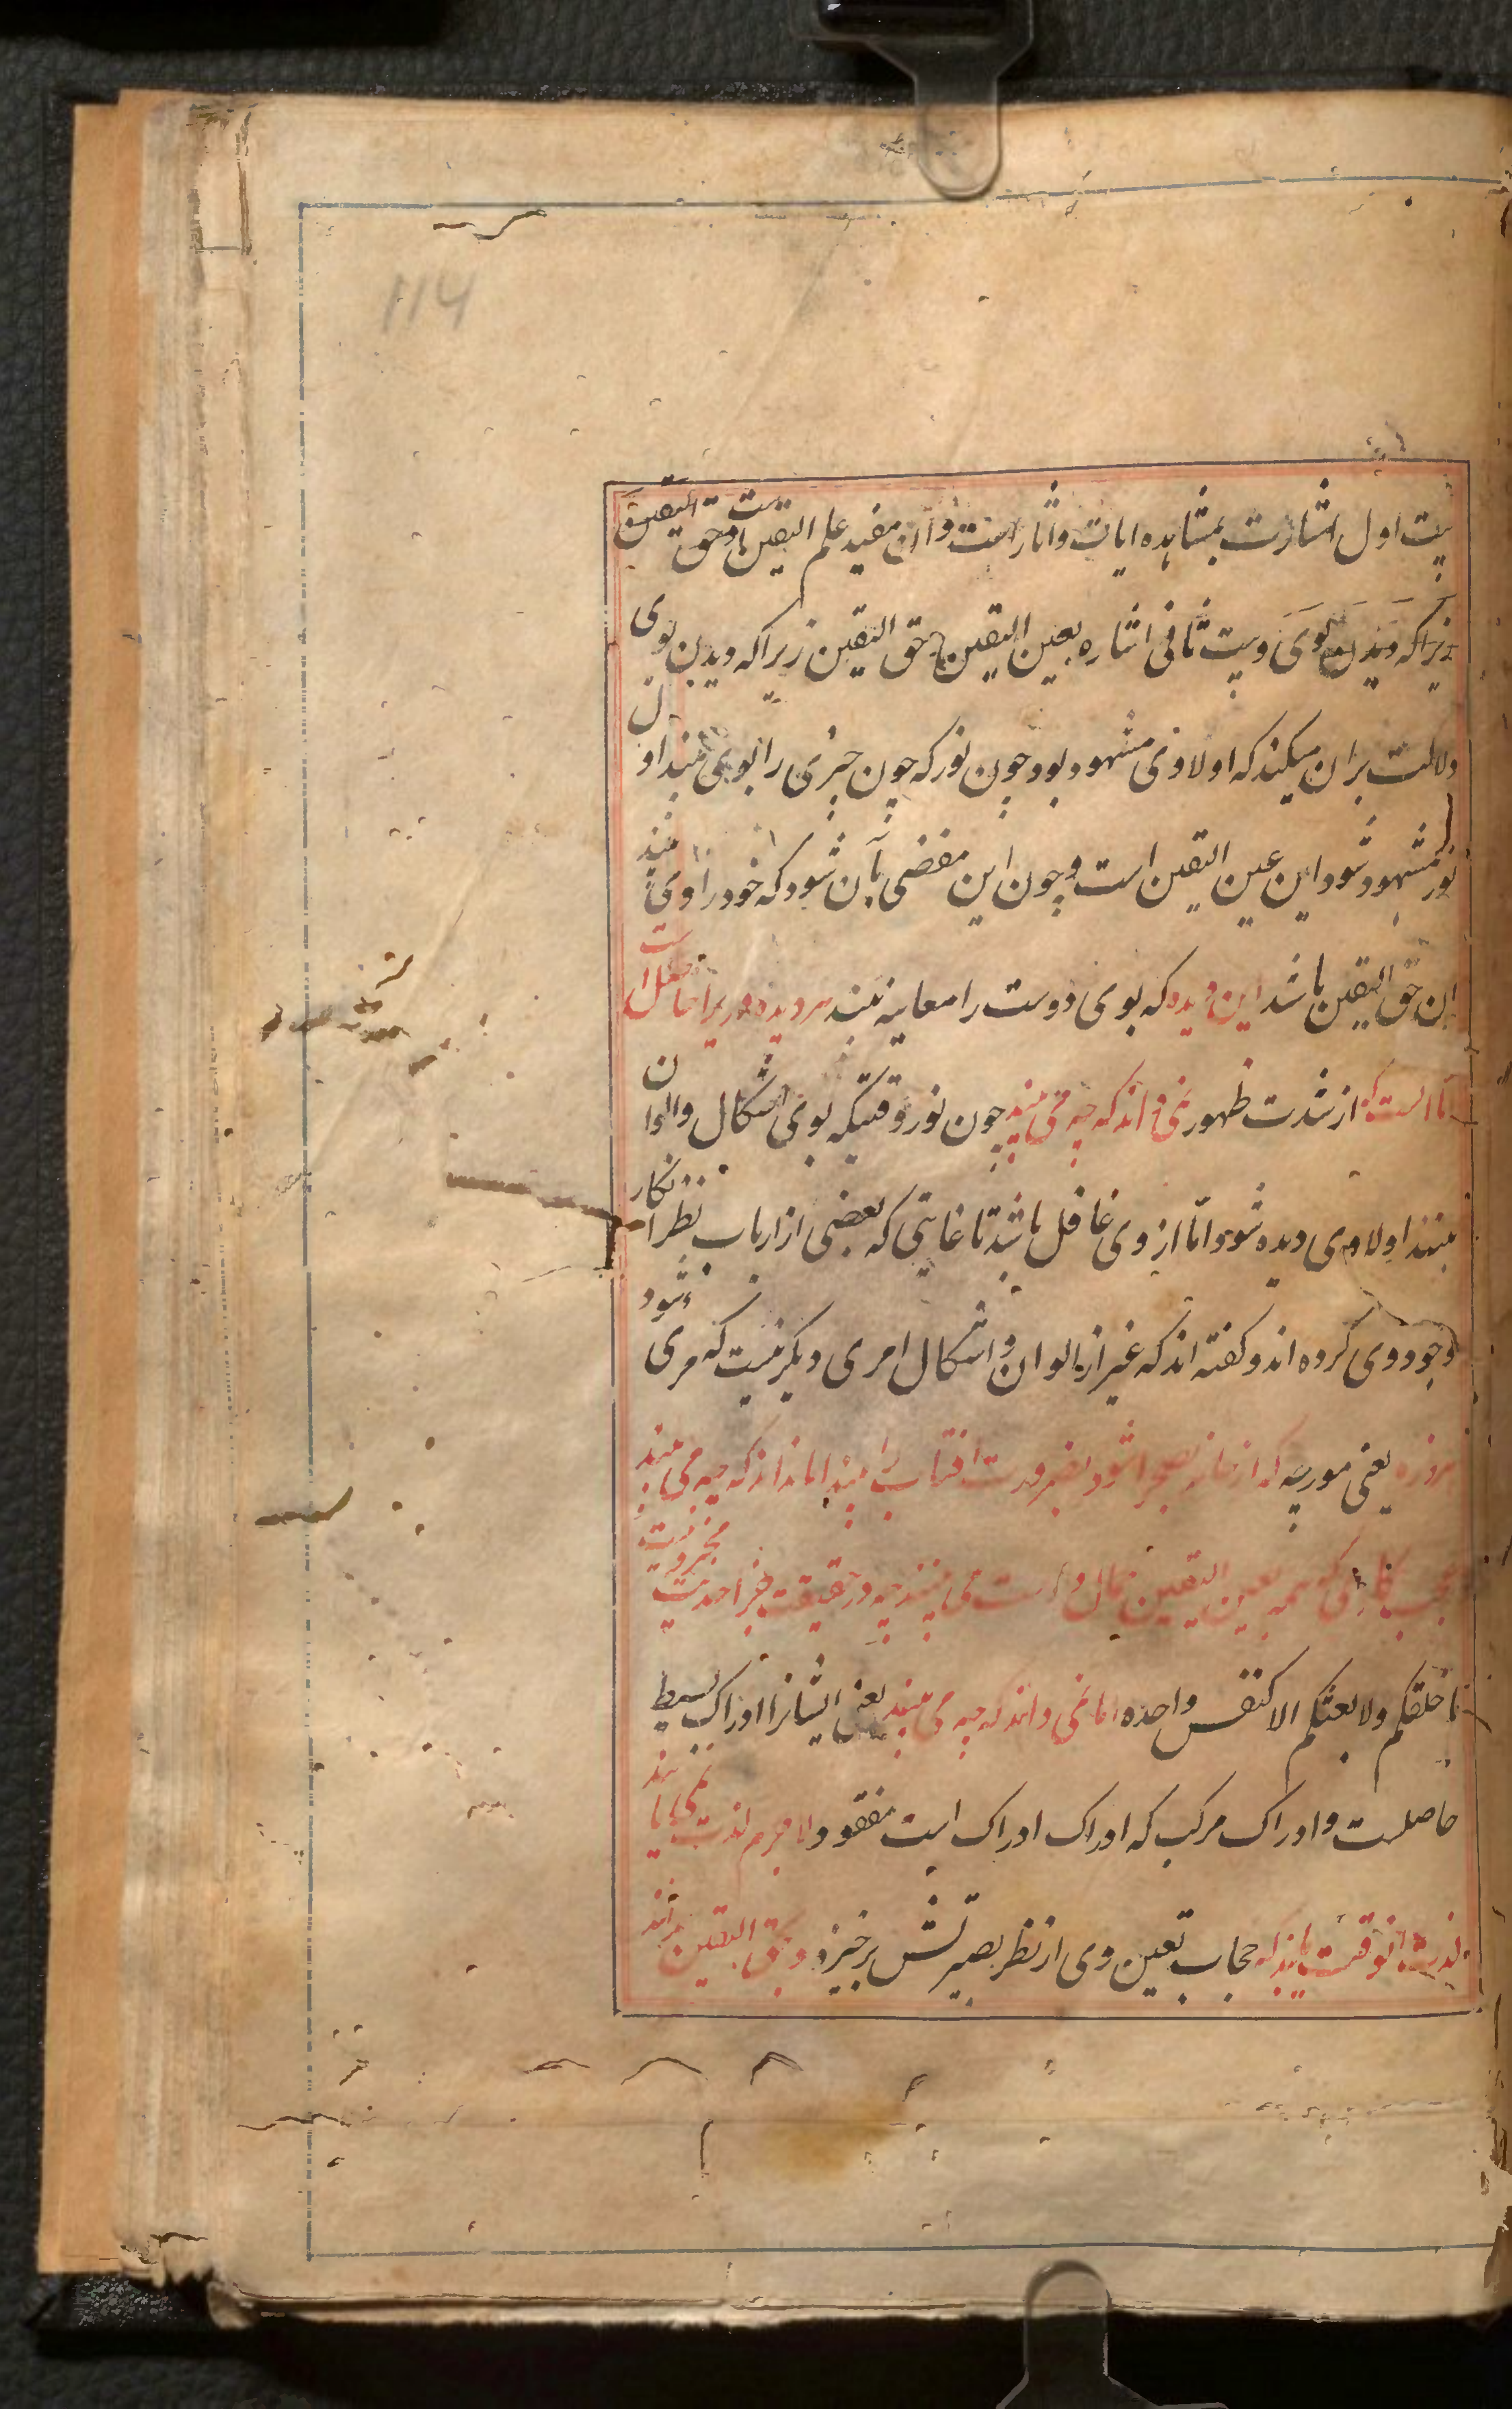 114
بیت اول اشارت بمشاهده ایات واثار است وآن مفید علم الیقین است وحق الیقین
زیراکه دیدن بوی وبیت ثانی اشاره بعین الیقین وحق الیقین زیراکه دیدن بوی
دلالت بران میکند که اولا وی مشهود بود چون نور که چون چیزی را بوی بیند اول
نور مشهود شود این عین الیقین است وچون این مفضی بآن شود که خود را وی بیند
ان حق الیقین باشد این دیده که بوی دوست را معاینه بیند هر دیده ور را حاصل است
اما است که از شدت ظهور نمی داند که چه می بیند چون نور وقتیکه بوی اشکال والوان
بینند اولا وی دیده شود اما از وی غافل باشد تا غایتی که بعضی از ارباب نظر انکار
وجود وی کرده اند وکفته اند که غیر از الوان واشکال امری دیکر نیست که مرئی شود
روزه یعنی مورچه که از خانه بصحرا شود بضرورت افتاب را بیند اما نداند که چه می بیند
عجب کاری که همه بعین الیقین جمال دوست می بینند چه در حقیقت جز احدیت مجرد نیست
ما خلقکم ولا بعثکم الا کنفس واحده اما نمی داند که چه می بیند یعنی ایشانرا ادراک بسیط
حاصلست وادراک مرکب که ادراک ادراک است مفقود لا جرم لذت نمی یابند
لذت انوقت یابد که حجاب تعین وی از نظر بصیرتش برخیزد وبحق الیقین بداند